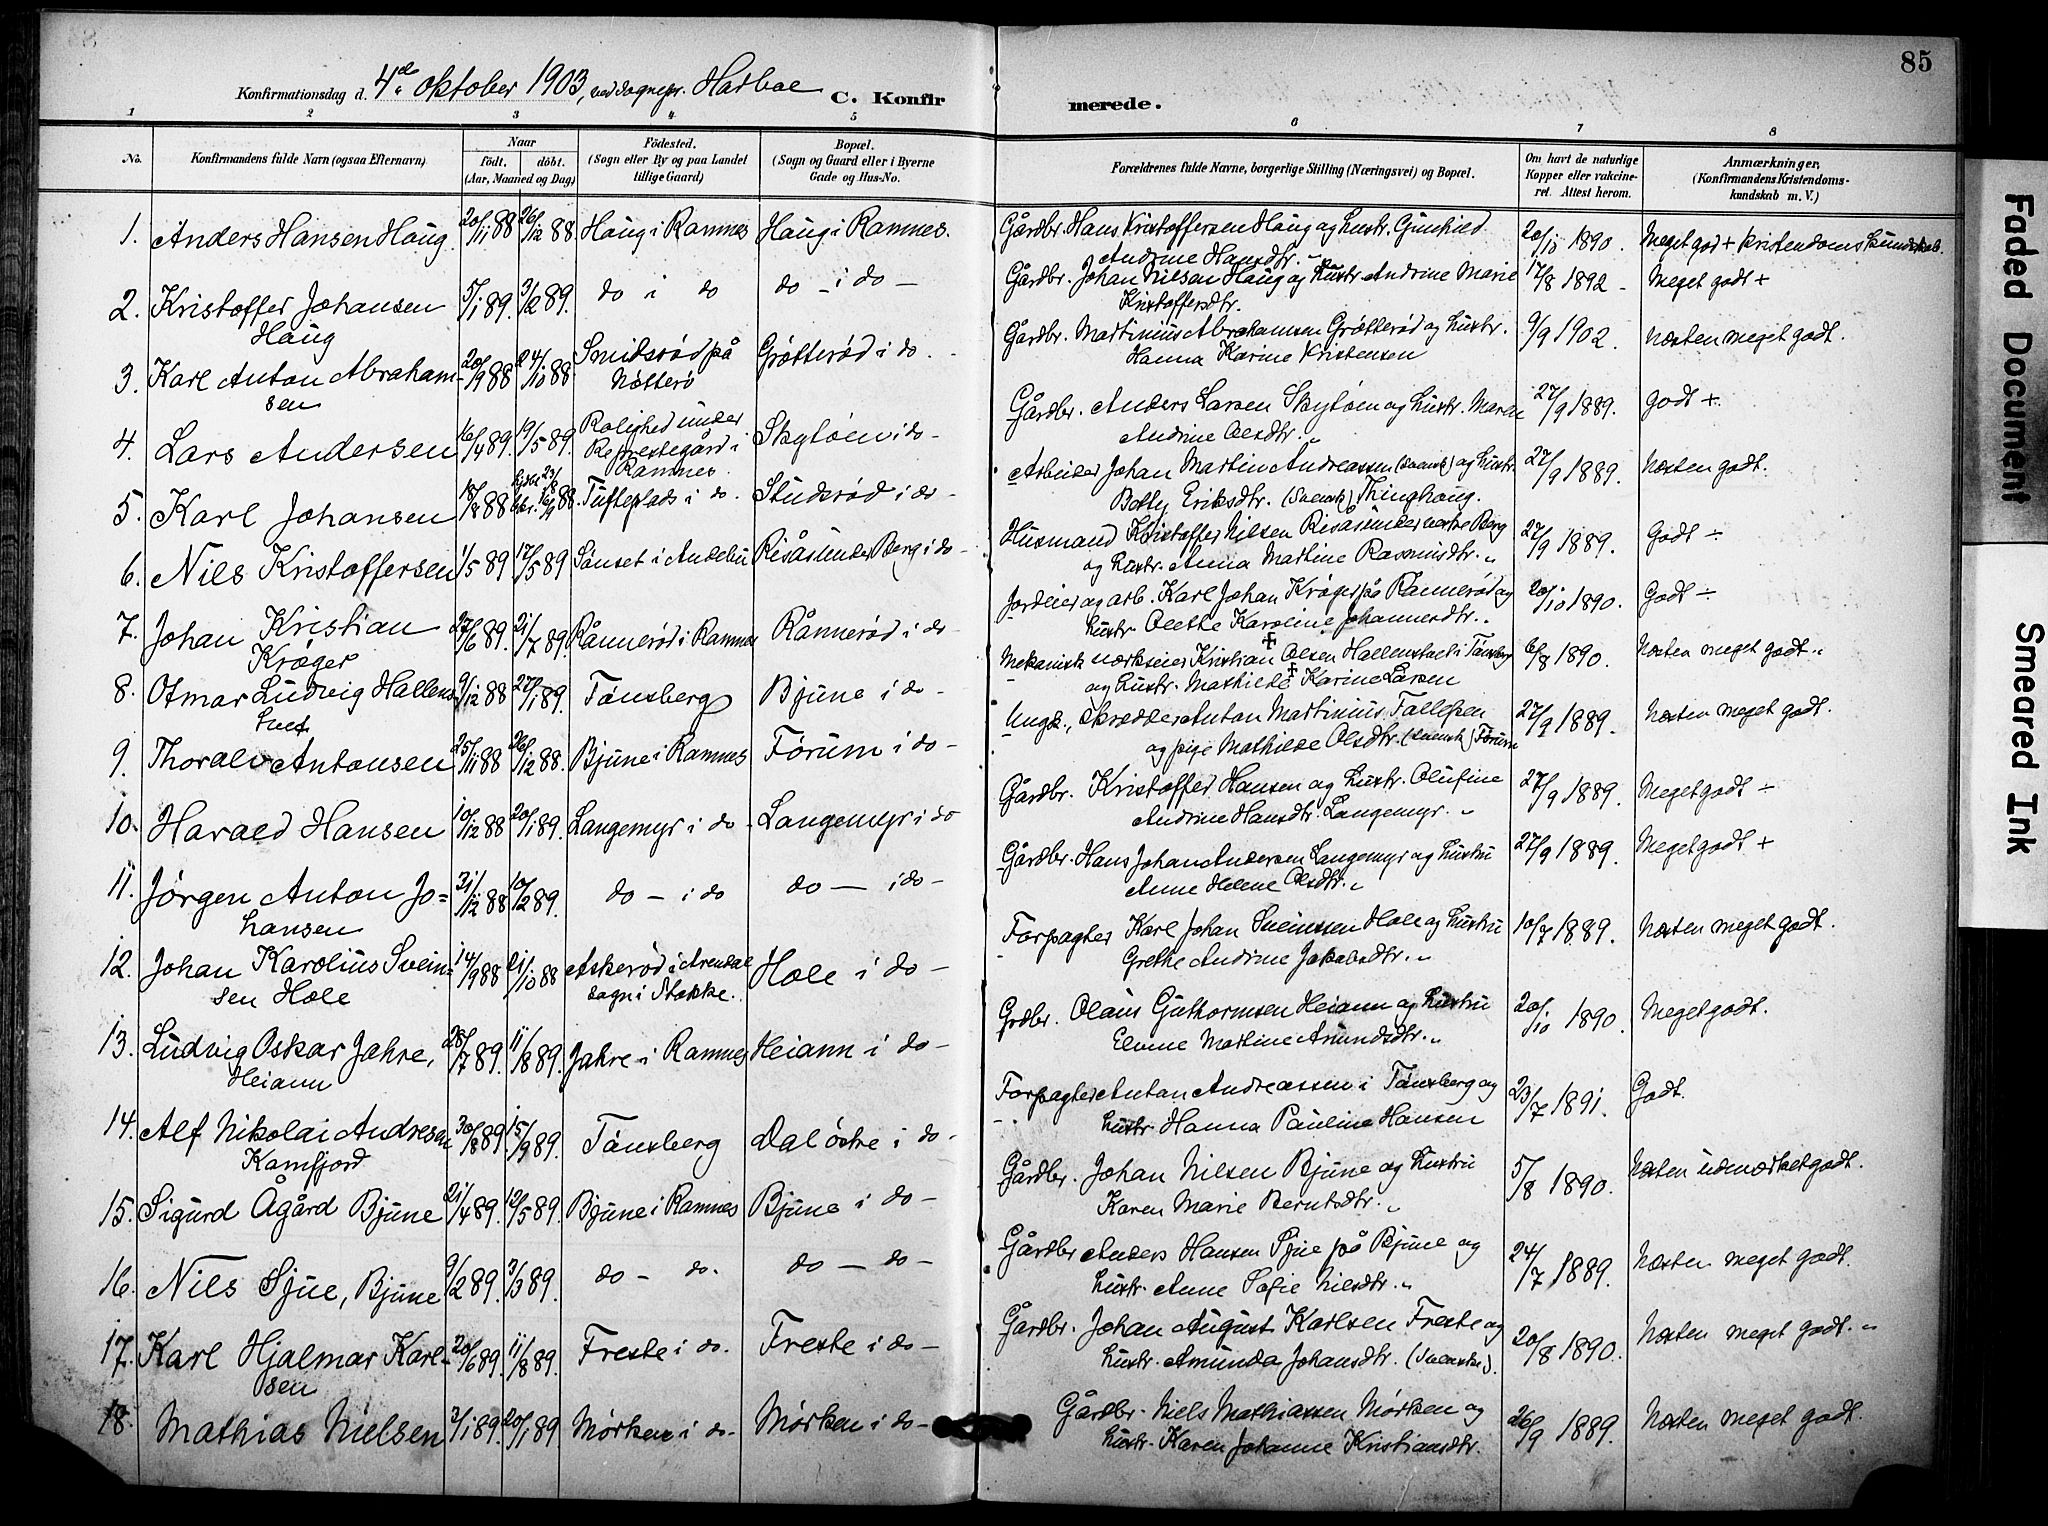 85
Konfirmationsdag d. 4de oktober 1903, ved sognepr. Harboe C. Konfirmerede.
1 2 3 4 5 6 7 8
No. Konfirmandens fulde Navn (ogsaa Efternavn) Naar födt. döbt. (Aar, Maaned og Dag) Födested. (Sogn eller By og paa Landet tillige Gaard) Bopæl. (Sogn og Gaard eller i Byerne Gade og Hus-No. Forældrenes fulde Navne, borgerlige Stilling (Næringsvei) og Bopæl. Om havt de naturlige Kopper eller vakcineret. Attest herom. Anmærkninger, (Konfirmandens Kristendomskundskab m. V.)
1. Anders Hansen Haug. 20/11 88 26/12 88. Haug i Ramnes Haug i Ramnes. Gårdbr. Hans Kristoffersen Haug og hustr. Gunhild Andrine Hansdtr. 20/10 1890. Meget god + kristendomskundskab.
2. Kristoffer Johansen Haug 5/1 89. 3/2 89. do i do do - i do - Gårdbr. Johan Nilsen Haug og hustr. Andrine Marie Kristoffersdtr. 17/8 1892 - Meget godt +
3. Karl Anton Abrahamsen 20/9 88 24/10 88 Smidsrød på Nøtterø Grøtterød i do. Gårdbr. Martinius Abrahamsen Grøtterød og hustr. Hanna Karine Kristensen 9/9 1902. Næsten meget godt.
4. Lars Andersen 16/4 89. 19/5 89. Rolighed under Ramnes Skytøen i do - Gårdbr. Anders Larsen Skytøen og hustr. Maren Andrine Olsdtr. 27/9 1889. godt +
5. Karl Johansen 18/8 88 16/9 88. Tufteplads i do. Studsrød i do - Arbeider Johan Martin Andreassen (Svensk) og hustr. Botty Eriksdtr. (Svensk) Thinghaug. 27/9 1889. Næsten godt.
6. Nils Kristoffersen 1/5 89 17/5 89 Sønset i Andebu Risås under Berg i do - Husmand Kristoffer Nilsen Risås under vestre Berg og hustr. Anna Martine Rasmusdtr. 27/9 1889. Godt ÷
7. Johan Kristian Krøger 27/6 89. 21/7 89. Rånnerød i Ramnes Rånnerød i do - Jordeier og arb. Karl Johan Krøger på Rånnerød og hustr. Olethe Karoline Johannesdtr. 20/10 1890. Godt ÷
8. Otmar Ludvig Hallenstvet 9/12 88 27/1 89. Tønsberg Bjune i do - Mekanisk værkseier Kristian Olsen Hallenstvet i Tønsberg og hustr. Mathilde Karine Larsen 6/8 1890. Næsten meget godt.
9. Thoralv Antonsen 25/11 88 26/12 88. Bjune i Ramnes Førum i do - Ungk., skrædder Anton Martinius Tollefsen og pige Mathilde Olsdtr. (svensk) Førum 27/9 1889. Næsten meget godt.
10. Harald Hansen 10/12 88 20/1 89. Langemyr i do - Langemyr i do Gårdbr. Kristoffer Hansen og hustr. Olufine Andrine Hansdtr. Langemyr. 27/9 1889. Meget godt ÷
11. Jørgen Anton Johansen 31/12 88 10/2 89. do - i do do - i do - Gårdbr. Hans Johan Andersen Langemyr og hustru Anne Helene Olsdtr. 27/9 1889. Meget godt +
12. Johan Karolius Sveinsen Hole 14/9 88 21/10 88 Askerød i Arendal sogn i Stokke. Hole i do - Forpagter Karl Johan Sveinssen Hole og hustru Grethe Andrine Jakobsdtr. 10/7 1889. Næsten meget godt.
13. Ludvig Oskar Jahre, Heiann 28/7 89. 11/8 89. Jahre i Ramnes Heiann i do - Grdbr. Olaus Guthormsen Heiann og hustru Martine Amundsdtr. 20/10 1890. Meget godt.
14. Alf Nikolai Andresen Kamfjord 30/8 89. 15/9 89. Tønsberg Dal östre i do - Forpagter Anton Andreassen i Tønsberg og hustr. Hanna Pauline Hansen 23/7 1891. Godt.
15. Sigurd Ågård Bjune 21/4 89. 12/5 89. Bjune i Ramnes Bjune i do - Gårdbr. Johan Nilsen Bjune og hustru Karen Marie Berntsdtr. 5/8 1890. Næsten udmærket godt.
16. Nils Sjue, Bjune 9/2 89. 3/3 89. do - do. do - do - Gårdbr. Anders Hansen Sjue på Bjune og hustr. Anne Sofie Nilsdtr. 24/7 1889. Næsten meget godt.
17. Karl Hjalmar Karlsen 20/6 89. 11/8 89. Freste i do. Freste i do - Gårdbr. Johan August Karlsen Freste og hustr. Amunda Johansdtr. (Svenske). 20/8 1890. Næsten meget godt.
18. Mathias Nielsen 2/1 89. 20/1 89 Mørken i do - Mørken i do - Gårdbr. Niels Mathiassen Mørken og hustr. Karen Johanne Kristiansdtr. 26/9 1889. Næsten meget godt.
Faded Document
Smeared Ink